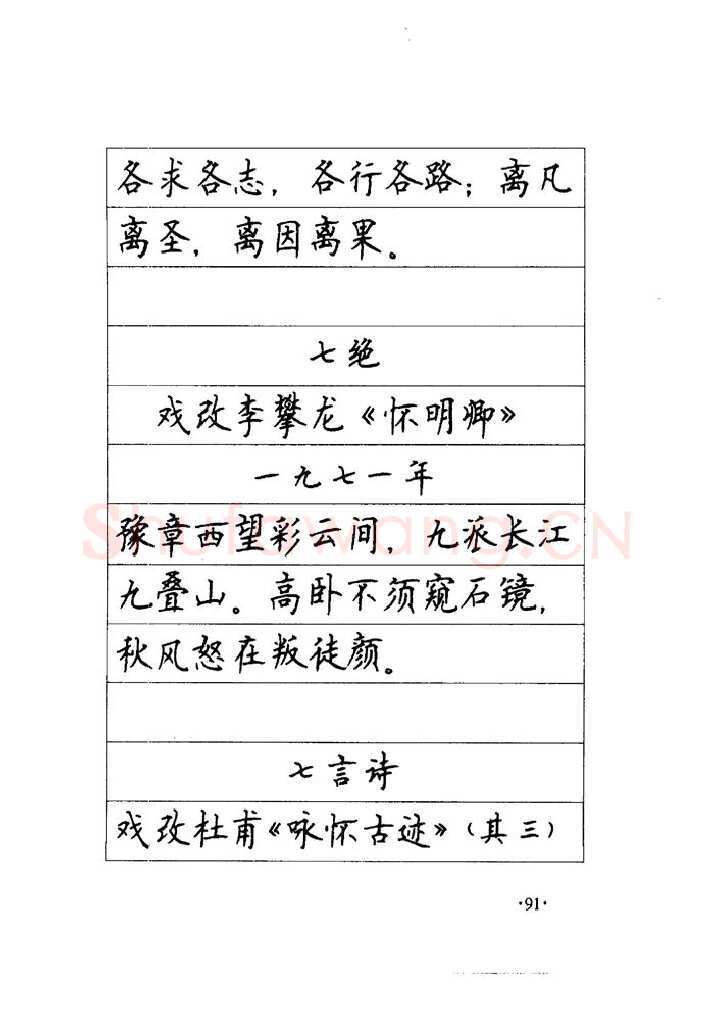 各求各志，各行各路；离凡
离圣，离因离果。
七绝
戏改李攀龙《怀明卿》
一九七一年
豫章西望彩云间，九派长江
九叠山。高卧不须窥石镜，
秋风怒在叛徒颜。
七言诗
戏改杜甫《咏怀古迹》（其三）
·91·
Shufawang.CN